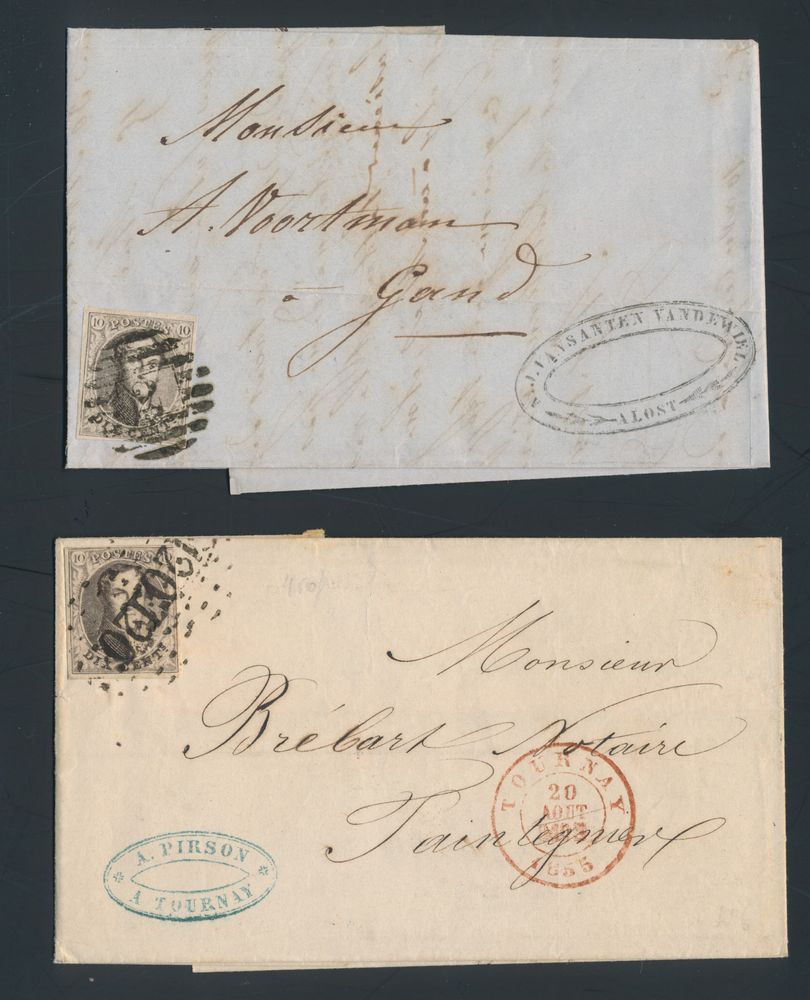 Monsieur
A. Voortman
a Gand
10 POSTES 10
DIX CENTS
J. VANSANTEN VANDEWIEL
ALOST
10 POSTES 10
DIX CENTS
120
Monsieur
Brébart Notaire
Taintegnies
TOURNAY
20
AOUT
1855
A. PIRSON
A TOURNAY